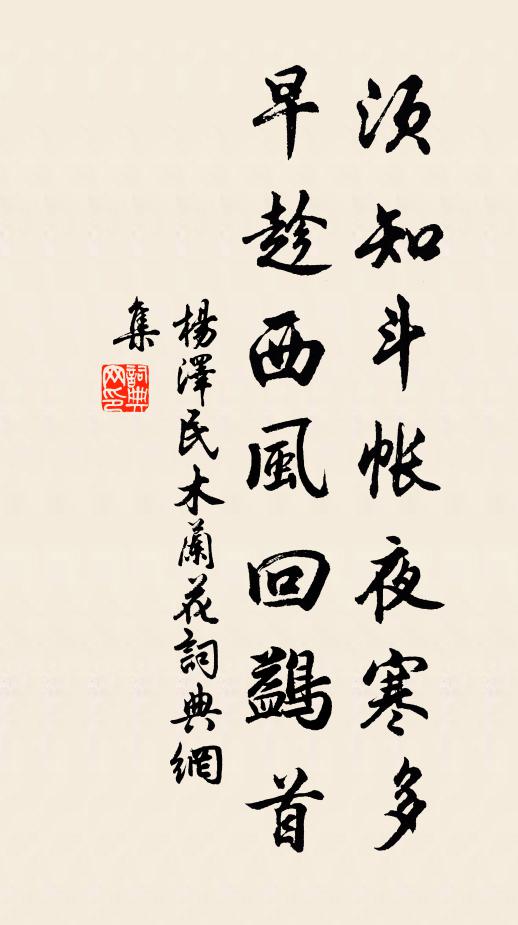 須知斗帳夜寒多
早趁西風回鷁首
楊澤民木蘭花詞典網
集
詞典
網印